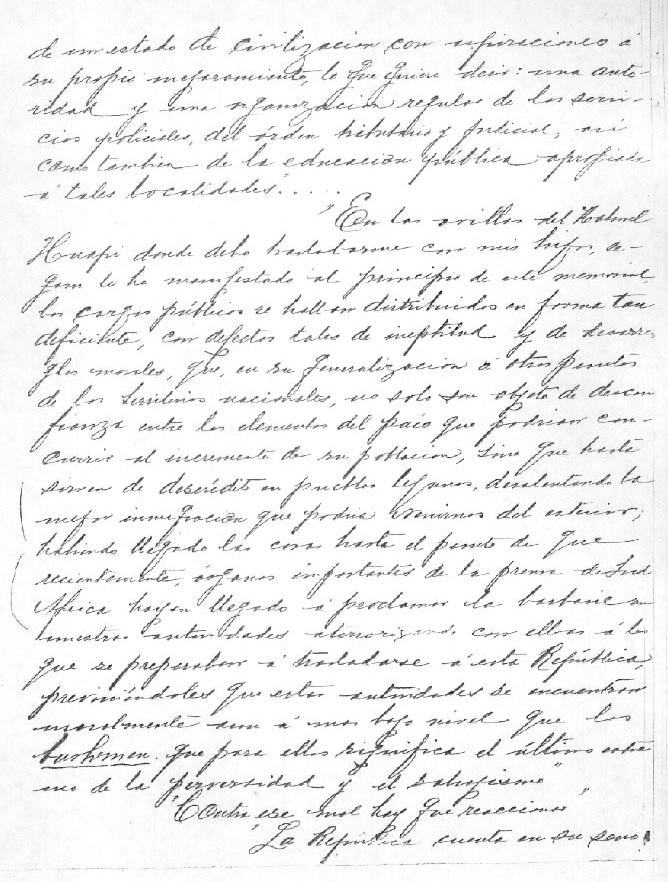 de un estado de civilizacion con aspiraciones á
su propio mejoramiento, lo que quiere decir: una auto-
ridad y una organizacion regular de los servi-
cios policiales, del órden tributario y judicial, asi
como tambien de la educacion pública apropiada
á tales localidades". . . . .
"En las orillas del Nahuel
Huapi donde debo trasladarme con mis hijos, se-
gun lo he manifestado al principio de este memorial,
los cargos públicos se hallan distribuidos en forma tan
deficiente, con defectos tales de ineptitud y de desarre-
glos morales, que, en su generalizacion á otros puntos
de los territorios nacionales, no solo son objeto de descon
fianza entre los elementos del pais que podrian con-
currir al incremento de su poblacion, sino que hasta
sirven de descrédito en pueblos lejanos, desalentando la
mejor inmigracion que podria venirnos del exterior;
habiendo llegado las cosas hasta el punto de que
recientemente, órganos importantes de la prensa de Sud
Africa hayan llegado á proclamar la barbarie en
nuestras autoridades aterrorizando con ellas á los
que se preparaban á trasladarse á esta República,
previniéndoles que estas autoridades se encuentran
moralmente aun á mas bajo nivel que los
bushmen que para ellos significa el último extre
mo de la perversidad y el salvajismo"
"Contra ese mal hay que reaccionar"
"La República cuenta en su seno